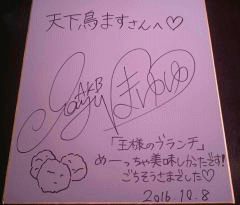 天下鳥ますさんへ♡
AKB
まゆゆ
「王様のブランチ」
めーっちゃ美味しかったです!
ごちそうさまでした♡
2016.10.8